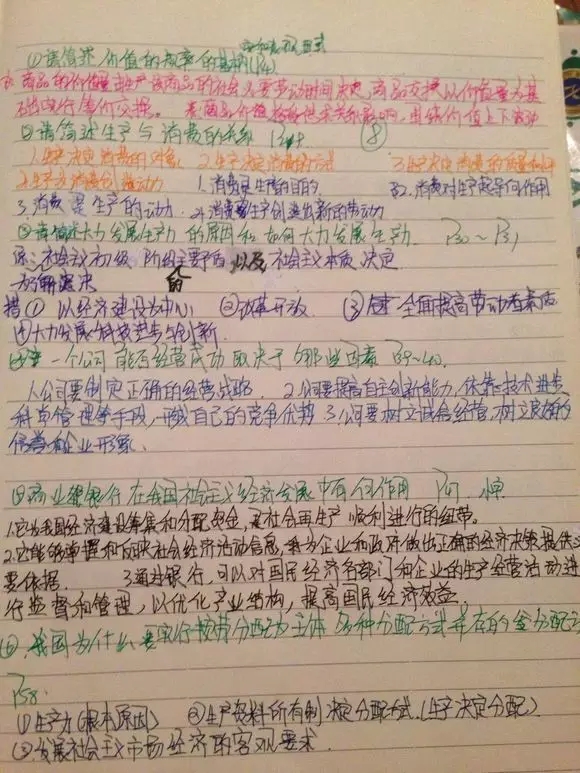 和表现形式
①请简述价值的规律的基本内容(P14)
商品的价值量由生产该商品的社会必要劳动时间决定,商品交换以价值量为基
础实行等价交换。 表:商品价格格受供求关系影响,围绕价值上下波动
②请简述生产与消费的关系 ⑧
1.生产决定消费的对象 2.生产决定消费的方式 3.生产决定消费的质量和水平
4.生产为消费创造动力 1.消费是生产的目的 2.消费对生产起导向作用
3.消费是生产的动力 4.消费为生产创造出新的劳动力
③请简述大力发展生产力的原因和如何大力发展生产力 P30~P31
原:社会主义初级阶段的主要矛盾以及社会主义本质决定
为解决
措① 以经济建设为中心 ②改革开放 ③ 全面提高劳动者素质
④大力发展科技进步与创新
一个公司能否经营成功取决于哪些因素 P39~40
1.公司要制定正确的经营战略 2.公司要提高自主创新能力,依靠技术进步
科学管理等手段,形成自己的竞争优势 3.公司要树立诚信经营,树立良好的
信誉和企业形象、
⑤商业银行在我国社会主义经济发展中有何作用 P47
1.它为我国经济建设筹集和分配资金,是社会再生产顺利进行的纽带。
2.它能够掌握和反映社会经济活动信息,为企业和政府做出正确的经济决策提供必
要依据. 3.通过银行,可以对国民经济各部门和企业的生产经营活动进
行监督和管理,以优化产业结构,提高国民经济效益
⑥、我国为什么要实行按劳分配为主体多种分配方式并存的分配
P58.
①生产力(根本原因) ②生产资料所有制决定分配方式.(生产决定分配)
③发展社会主义市场经济的客观要求.